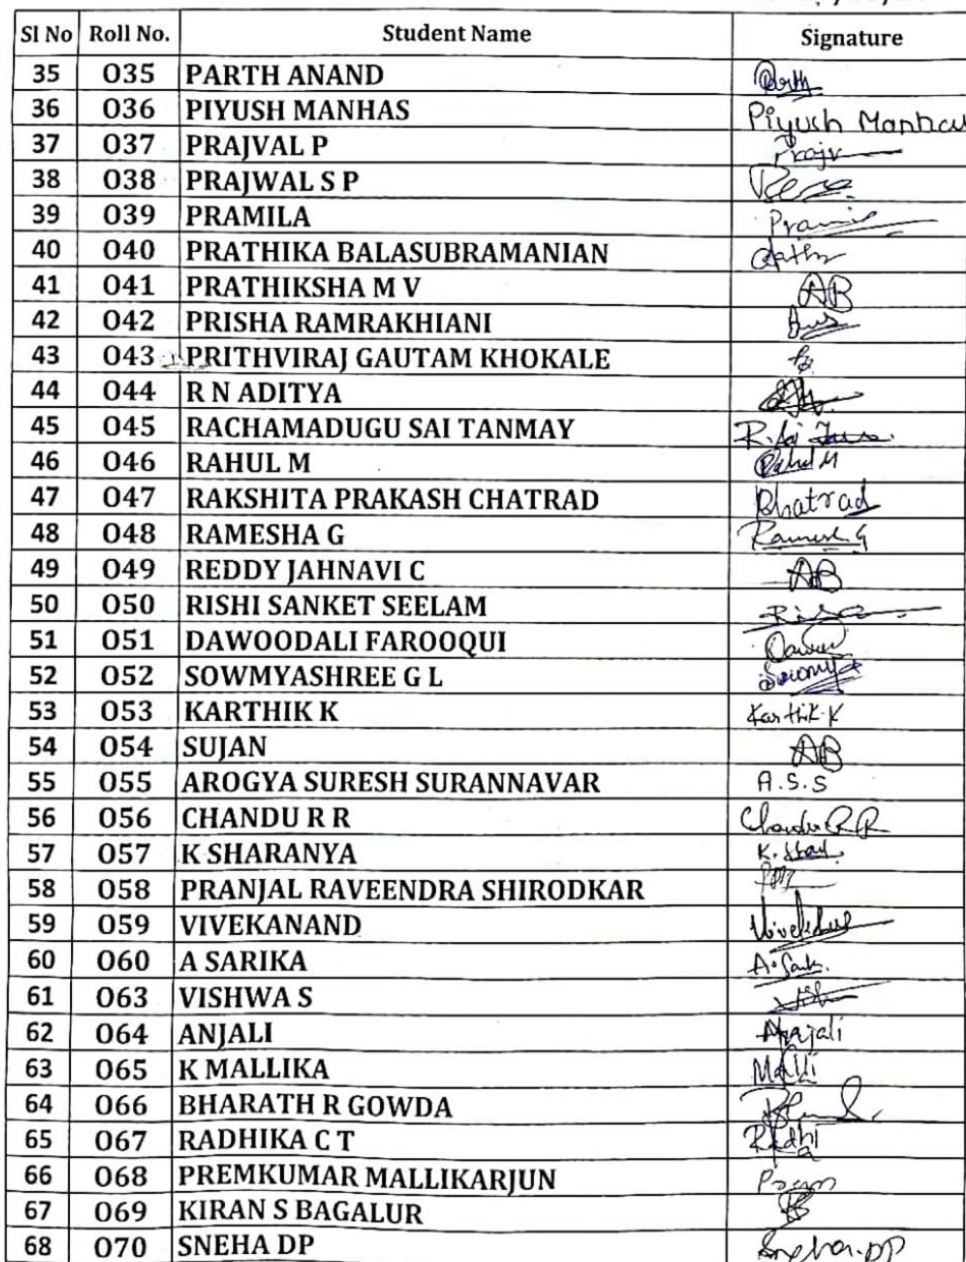 Sl No Roll No. Student Name Signature
35 O35 PARTH ANAND Parth
36 O36 PIYUSH MANHAS Piyush Manhas
37 O37 PRAJVAL P Prajv
38 O38 PRAJWAL S P
39 O39 PRAMILA Prami
40 O40 PRATHIKA BALASUBRAMANIAN
41 O41 PRATHIKSHA M V AB
42 O42 PRISHA RAMRAKHIANI
43 O43 PRITHVIRAJ GAUTAM KHOKALE
44 O44 R N ADITYA
45 O45 RACHAMADUGU SAI TANMAY R. Sai
46 O46 RAHUL M Rahul M
47 O47 RAKSHITA PRAKASH CHATRAD Chatrad
48 O48 RAMESHA G Ramesh G
49 O49 REDDY JAHNAVI C AB
50 O50 RISHI SANKET SEELAM
51 O51 DAWOODALI FAROOQUI
52 O52 SOWMYASHREE G L Sowmya
53 O53 KARTHIK K Karthik.K
54 O54 SUJAN AB
55 O55 AROGYA SURESH SURANNAVAR A.S.S
56 O56 CHANDU R R Chandu R R
57 O57 K SHARANYA
58 O58 PRANJAL RAVEENDRA SHIRODKAR
59 O59 VIVEKANAND
60 O60 A SARIKA
61 O63 VISHWA S
62 O64 ANJALI Anjali
63 O65 K MALLIKA Malli
64 O66 BHARATH R GOWDA
65 O67 RADHIKA C T Radhi
66 O68 PREMKUMAR MALLIKARJUN Prem
67 O69 KIRAN S BAGALUR
68 O70 SNEHA DP Sneha.DP